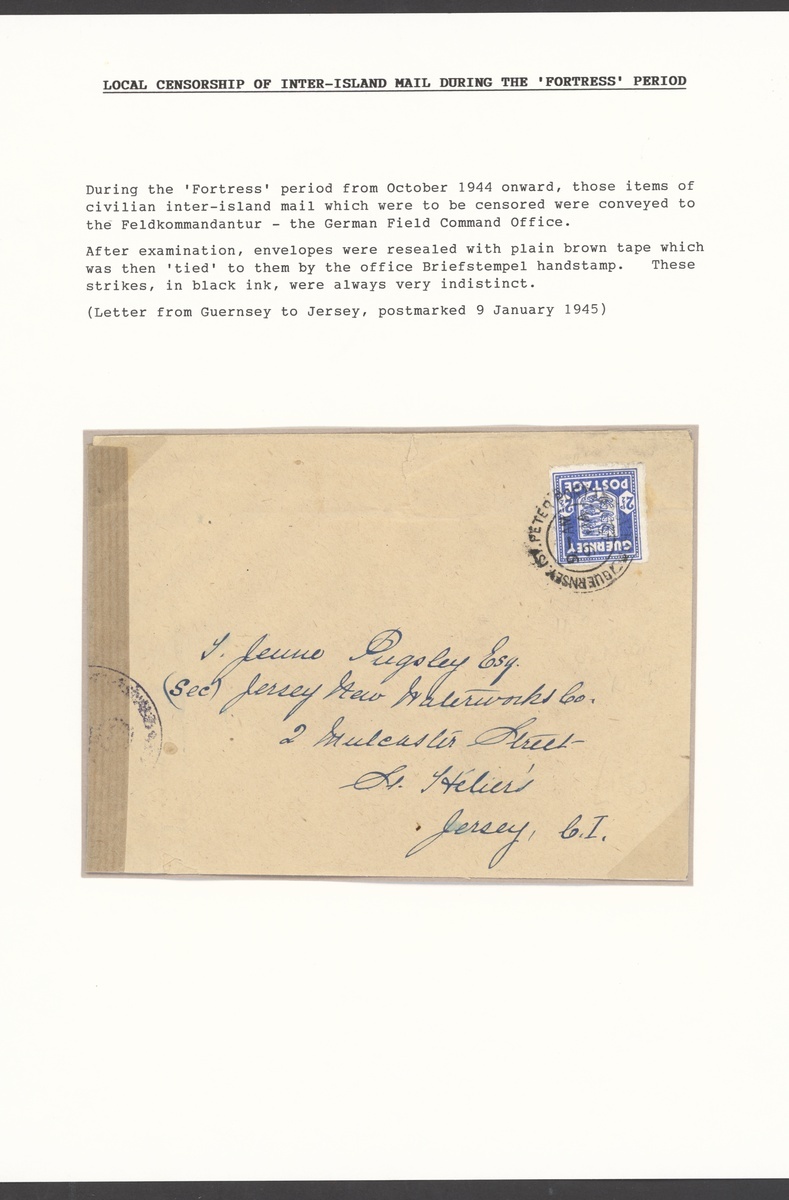 LOCAL CENSORSHIP OF INTER-ISLAND MAIL DURING THE 'FORTRESS' PERIOD
During the 'Fortress' period from October 1944 onward, those items of
civilian inter-island mail which were to be censored were conveyed to
the Feldkommandantur - the German Field Command Office.
After examination, envelopes were resealed with plain brown tape which
was then 'tied' to them by the office Briefstempel handstamp. These
strikes, in black ink, were always very indistinct.
(Letter from Guernsey to Jersey, postmarked 9 January 1945)
POSTAGE
2½ 2½
GUERNSEY
GUERNSEY. (ST. PETER
Pugsley Esq.
(Sec) Jersey New Waterworks Co.
2 Mulcaster Street
St. Helier's
Jersey, C.I.